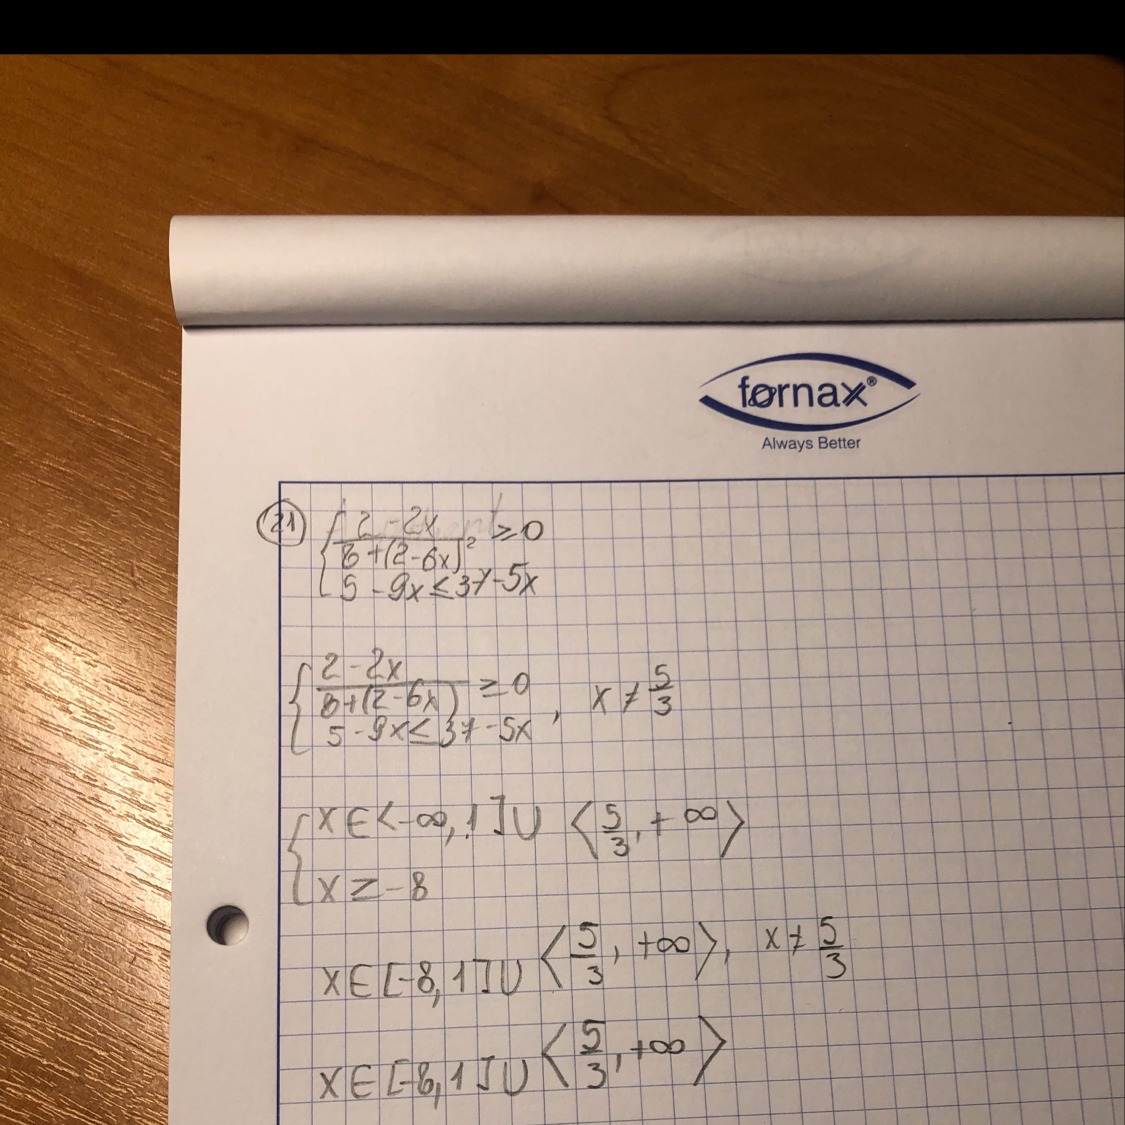 fornax®
Always Better
21) { 2 - 2x / 8 + (2-6x)² ≥ 0
5 - 9x ≤ 37 - 5x
{ 2 - 2x / 8 + (2-6x) ≥ 0 , x ≠ 5/3
5 - 9x ≤ 37 - 5x
{ x ∈ <-∞, 1] ∪ ⟨5/3, +∞⟩
x ≥ -8
x ∈ [-8, 1] ∪ ⟨5/3, +∞⟩, x ≠ 5/3
x ∈ [-8, 1] ∪ ⟨5/3, +∞⟩